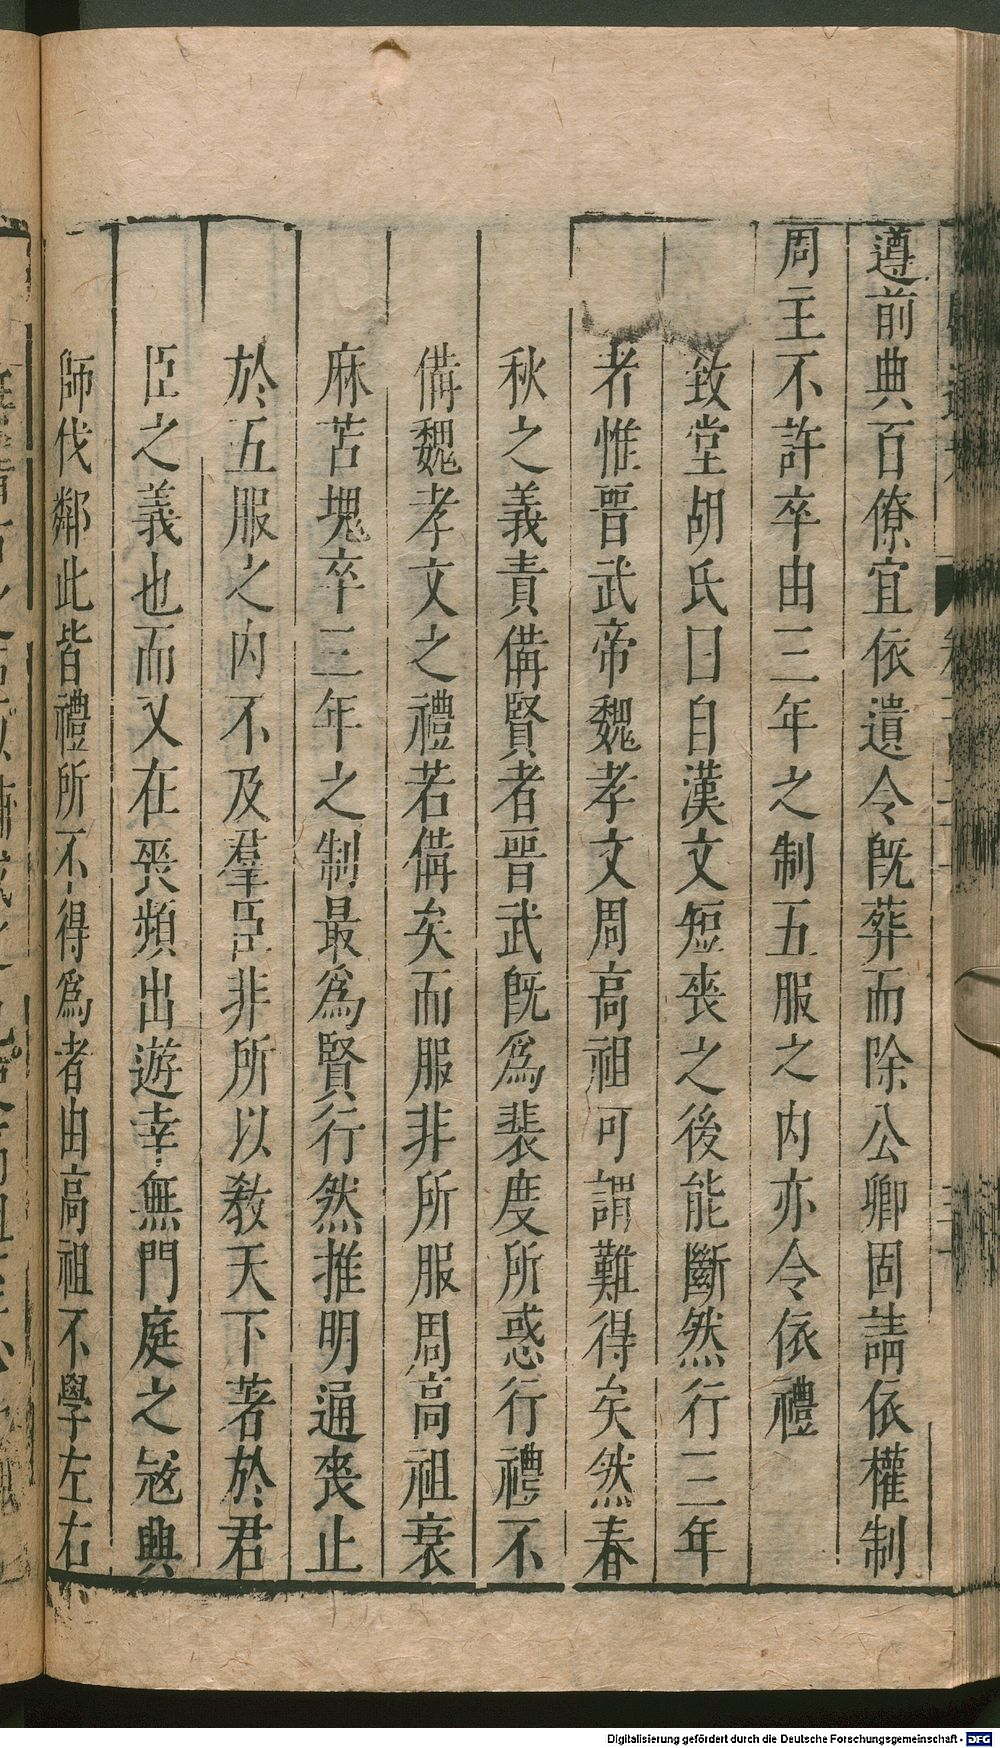 遵前典百僚宜依遺令既葬而除公卿固請依權制
周主不許卒由三年之制五服之內亦令依禮
致堂胡氏曰自漢文短喪之後能斷然行三年
者惟晉武帝魏孝文周高祖可謂難得矣然春
秋之義責備賢者晉武既爲裴度所惑行禮不
備魏孝文之禮若備矣而服非所服周高祖衰
麻苫塊卒三年之制最爲賢行然推明通喪止
於五服之內不及羣臣非所以教天下著於君
臣之義也而又在喪頻出遊幸無門庭之寇興
師伐鄰此皆禮所不得爲者由高祖不學左右
Digitalisierung gefördert durch die Deutsche Forschungsgemeinschaft - DFG